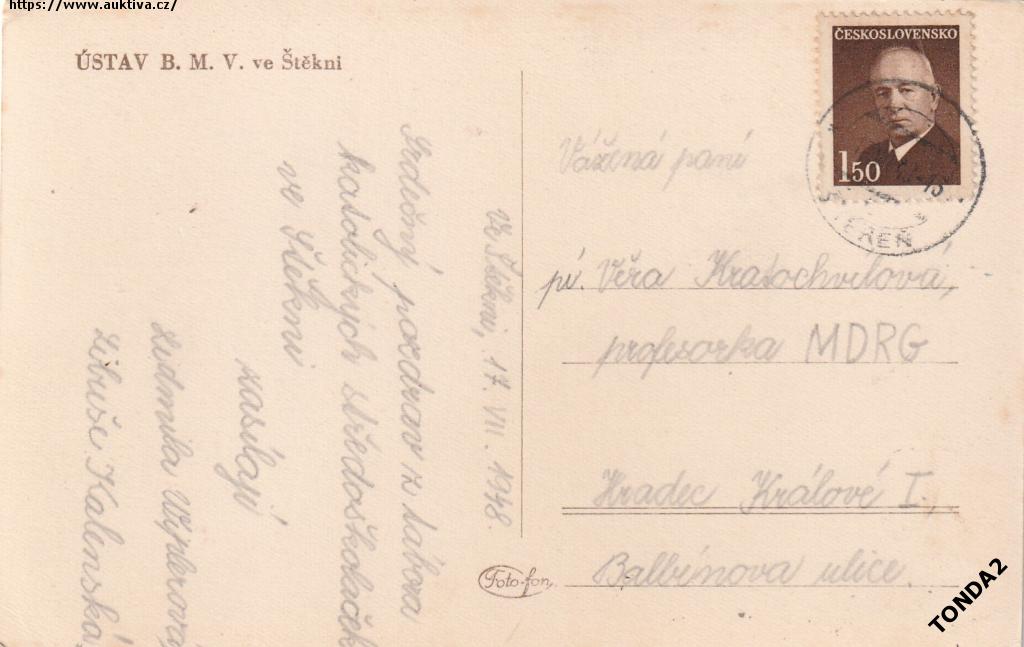 https://www.auktiva.cz/
ÚSTAV B. M. V. ve Štěkni
Ve Štěkni, 17. VII. 1948.
Srdečný pozdrav z tábora
katolických středoškolaček
ve Štekni
zasílají
Ludmila
Libuše Kalenská
ČESKOSLOVENSKO
1 50
Vážená paní
pí. Věra Kratochvílová,
profesorka MDRG
Hradec Králové I,
Balbínova ulice.
Foto-fon
TONDA2